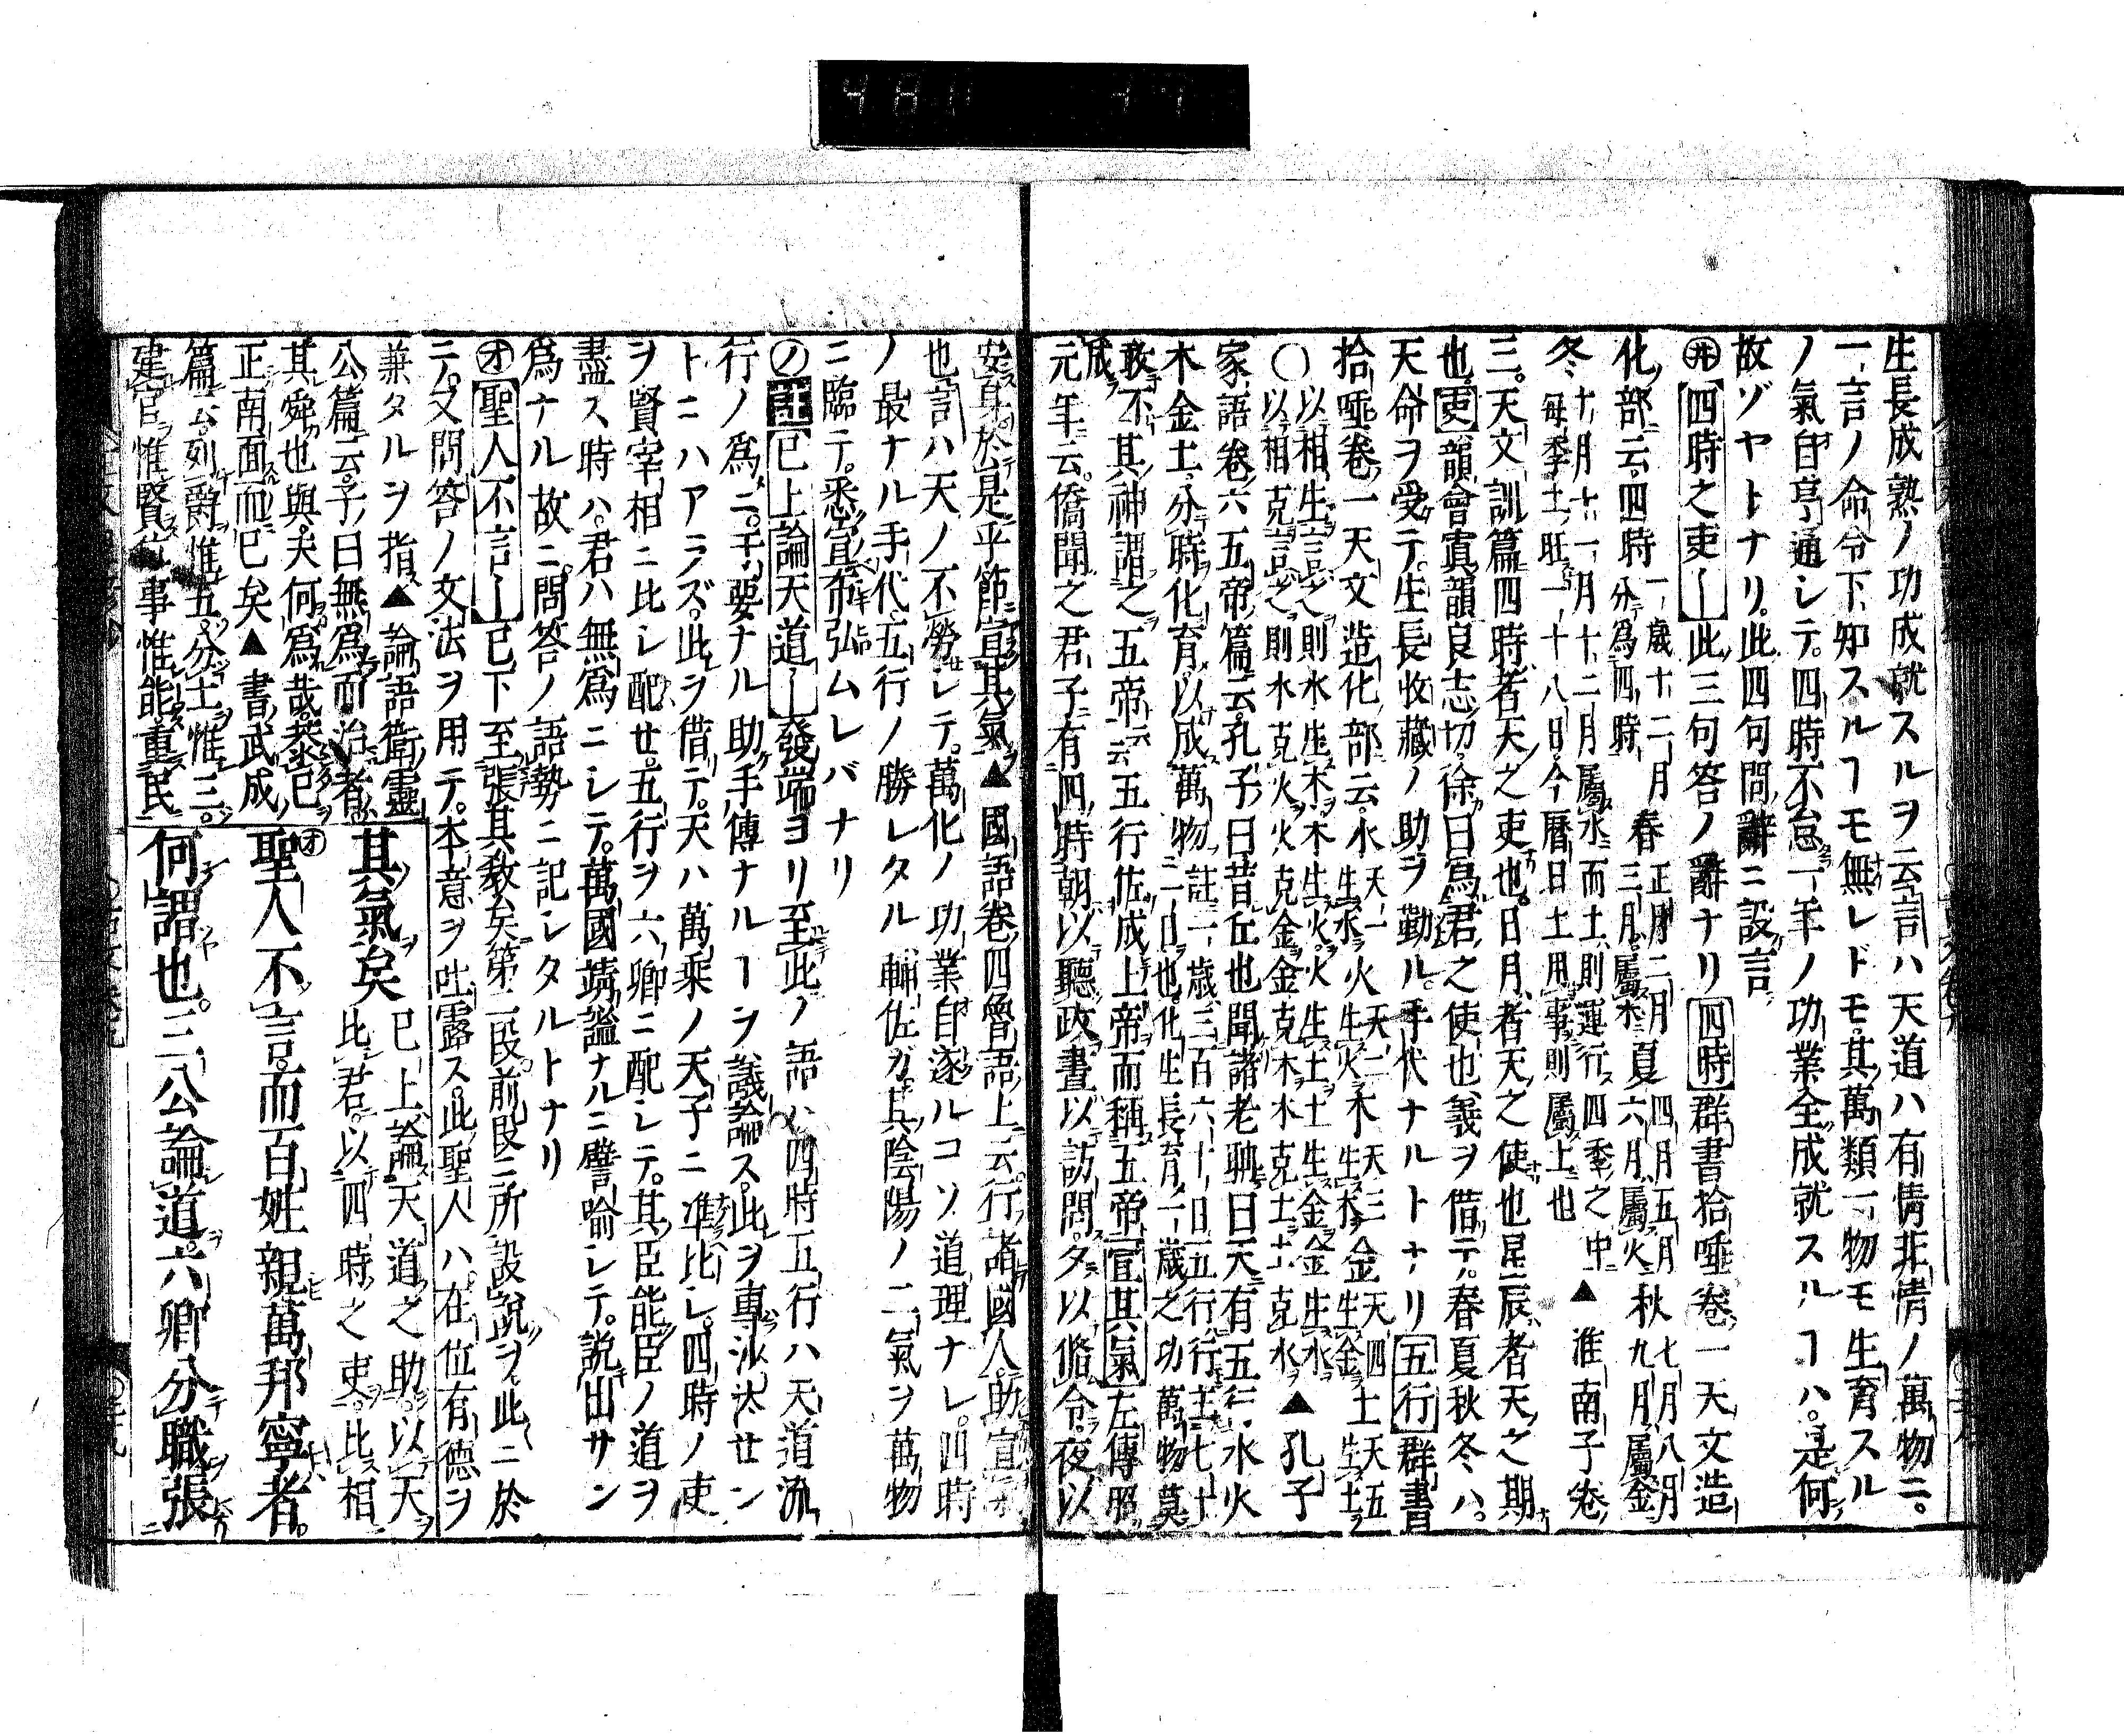 生長成熟ノ功成就スルヲ云言ハ天道ハ有情非情ノ萬物ニ。
一言ノ命令下知スルヿモ無レドモ。其萬類一物モ生育スル
ノ氣自亨通シテ。四時不怠一年ノ功業全成就スルヿハ。是何
故ゾヤトナリ。此四句問辭ニ設言
㋄四時之吏〡此三句答ノ辭ナリ四時群書拾唾卷一天文造
化部云。四時
一歳十二月
分爲四時
春
正月二月
三月。屬木
夏
四月五月
六月。屬火
秋
七月八月
九月。屬金
冬
十月十一月十二月屬水而土則運行四季之中
每季土旺一十八日。今曆日土用事則屬上也
▲淮南子卷
三。天文訓篇四時者天之吏也。日月者天之使也星辰者天之期
也。吏韻會寘韻良志切。徐曰爲君之使也義ヲ借テ。春夏秋冬ハ。
天命ヲ受テ。生長收藏ノ助ヲ勤ル。手代ナルトナリ五行群書
拾唾卷一天文造化部云。水
天一
生水
火
天二
生火
木
天三
生木
金
天四
生金
土
天五
生土
○
以相生言之則水生木木生火。火生土土生金金生水
以相克言之則水克火火克金金克木木克土土克水
▲孔子
家語卷六五帝篇云。孔子曰昔丘也聞諸老聃曰天有五行水火
木金土分時化育以成萬物
註一歳三百六十日五行行主七十
二日也。化生長育一歳之功萬物莫
敢不
成
其神謂之五帝云五行佐成上帝而稱五帝宣其氣左傳昭
元年云。僑聞之君子有四時朝以聽政晝以訪問。夕以脩令。夜以
安身於是乎節宣其氣▲國語卷四魯語上云。行諸國人助宣
也言ハ天ノ不勞シテ。萬化ノ功業自遂ルコソ道理ナレ。四時
ノ最ナル手代五行ノ勝レタル輔佐ガ。其陰陽ノ二氣ヲ萬物
ニ臨テ。悉宣布弘ムレバナリ
㋨註已上論天道〡發端ヨリ至此ノ語ハ四時五行ハ天道流
行ノ爲ニ。千要ナル助手傳ナルヿヲ議論ス。此ヲ專沙汰セン
トニハアラズ。此ヲ借テ。天ハ萬乘ノ天子ニ準比シ。四時ノ吏
ヲ賢宰相ニ比シ配セ。五行ヲ六卿ニ配シテ。其臣能臣ノ道ヲ
盡ス時ハ。君ハ無爲ニシテ。萬國靖謐ナルニ譬喻シテ。說出サン
爲ナル故ニ。問答ノ語勢ニ記シタルトナリ
㋔聖人不言〡已下至張其教矣第二段前段ニ所設說ヲ此ニ於
テ。又問答ノ文法ヲ用テ。本意ヲ吐露ス。此聖人ハ。在位有德ヲ
兼タルヲ指▲論語衛靈
公篇云。子曰無爲而治者
其舜也與。夫何爲哉。恭己
正南面而已矣▲書武成
篇云。列爵惟五。分土惟三。
建官惟賢位事惟能重民
其氣矣
已上論天道之助。以天
比君。以四時之吏。比相
㋔聖人不言。而百姓親萬邦寧者。
何謂也。三公論道。六卿分職張